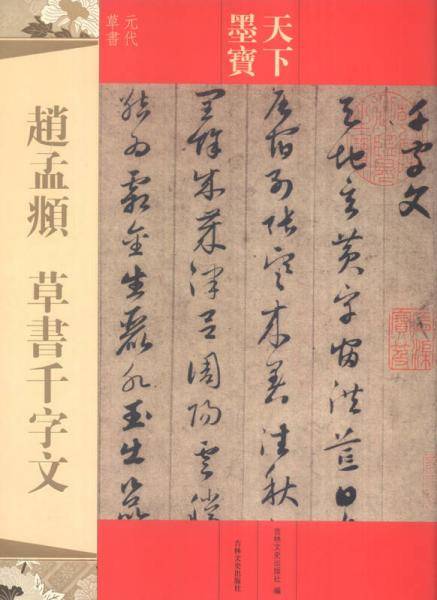 天下
墨寶
元代
草書
趙孟頫 草書千字文
千字文
天地玄黃宇宙洪荒日
辰宿列張寒来暑往秋
閏餘成歲律呂調陽雲騰
結為霜金生麗水玉出崑
吉林文史出版社 編
吉林文史出版社